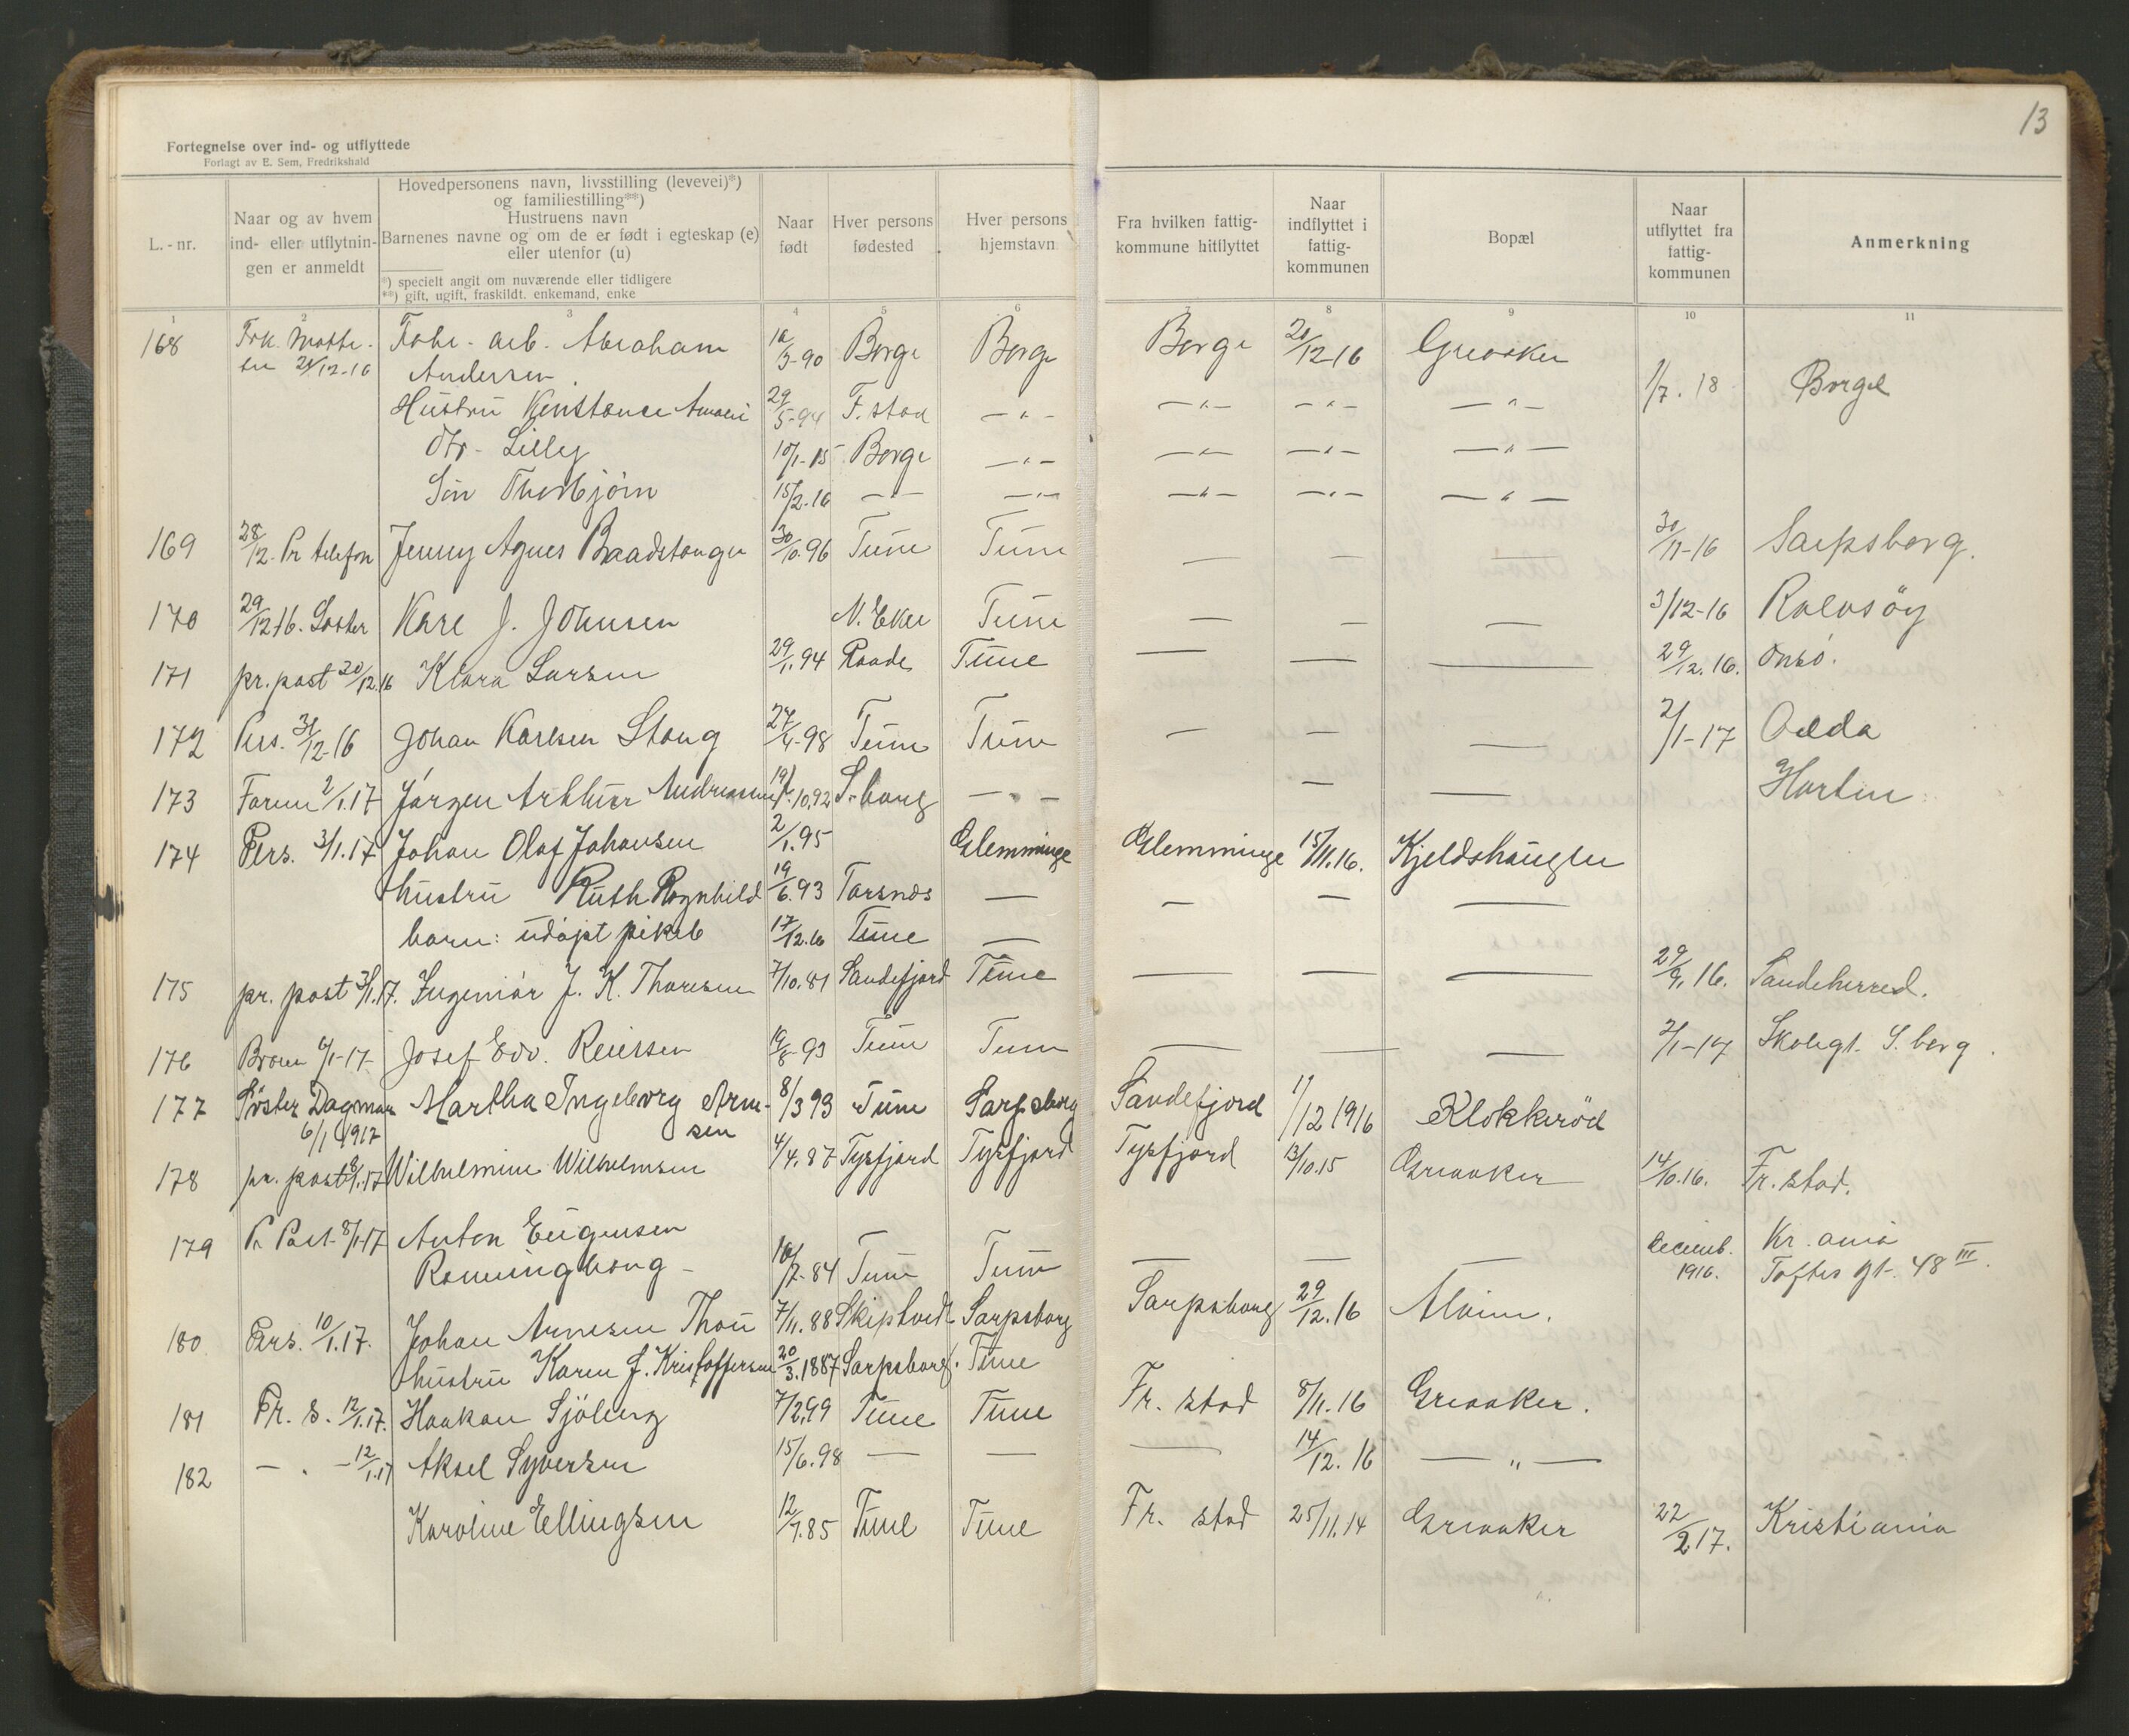 13
Fortegnelse over ind- og utflyttede
Forlagt av E. Sem, Fredrikshald
L.-nr.
Naar og av hvem
ind- eller utflytnin-
gen er anmeldt
Hovedpersonens navn, livsstilling (levevei)*)
og familiestilling**)
Hustruens navn
Barnenes navne og om de er født i egteskap (e)
eller utenfor (u)
*) specielt angit om nuværende eller tidligere
**) gift, ugift, fraskildt. enkemand, enke
Naar
født
Hver persons
fødested
Hver persons
hjemstavn
Fra hvilken fattig-
kommune hitflyttet
Naar
indflyttet i
fattig-
kommunen
Bopæl
Naar
utflyttet fra
fattig-
kommunen
Anmerkning
1 2 3 4 5 6 7 8 9 10 11
168 Frk. 12-16 Fabr. arb. Abraham 3-90 Borge Borge Borge 20/12 16 Greaaker
Andersen 1/7. 18 Borge
Hustru Konstance 29/5-94 F.stad — " — — " — — " — — " —
Dtr. Lilly 10/1-15 Borge — " — — " — — " — — " —
Søn Thorbjørn 15/2.16 — " — — " — — " — — " — — " —
169 28/12. Pr telefon Jenny Agnes Baadstangen 30/10.96 Tune Tune — — — 30/11-16 Sarpsborg.
170 29/12 16. Karl J. Johnsen N. Eker Tune — — — 3/12-16 Rolvsøy
171 pr. post 20/12.16 Klara Larsen 29/1.94 Raade Tune — — — 29/12.16. Onsø.
172 Pers. 30/12-16 Johan Karlsen Stang 27/4-98 Tune Tune — — — 2/1-17 Odda
173 2/1.17 Jørgen Arthur Andreassen 19/10.92 S-borg — " — — — Horten
174 Pers. 3/1.17 Johan Olaf Johansen 2/1.95 Glemminge Glemminge 15/11.16. Kjeldshaugen
hustru Ruth Ragnhild 19/6.93 Torsnæs — — — —
barn: udøpt pikeb 17/12.16 Tune —
175 pr. post 3/1.17. Ingemar J. K. Thoresen 7/10.81 Sandefjord Tune — — — 29/9.16. Sandeherred.
176 6/1-17 Josef Edv. Reiersen 8-93 Tune Tune — — — 2/1-17 Skolegt. S.borg.
177 Søster Dagmar Martha Ingeborg Arne- 8/3 93 Tune Sarpsborg Sandefjord 1/12 1916 Klokkerød
6/1 1917 sen
178 pr. post 8/1.17 Wilhelmine Wilhelmsen 4/4.87 Tysfjord Tysfjord Tysfjord 13/10.15 Greaaker 14/10.16. Fr.stad.
179 Pr Post 8/1-17 Anton Eugensen
Ronningborg 7-84 Tune Tune — — — Decemb. 1916. Kr.ania
Toftes gt. 48 III.
180 Pers. 10/1.17. Johan Arnesen Thou 7/11.88 Skiptvedt Sarpsborg Sarpsborg 29/12.16 Alvim.
hustru Karen J. Kristoffersen 20/3.1887 Sarpsborg. Tune
181 Fr. S. 12/1.17. Haakon Sjøberg 7/2.99 Tune Tune Fr. stad 8/11.16 Greaaker.
182 — " — 12/1.17 Aksel Syversen 15/6.98 — — — 14/12.16 — " —
Karoline Ellingsen 12/7.85 Tune Tune Fr. stad 25/11.14 Greaaker 22/2 17. Kristiania